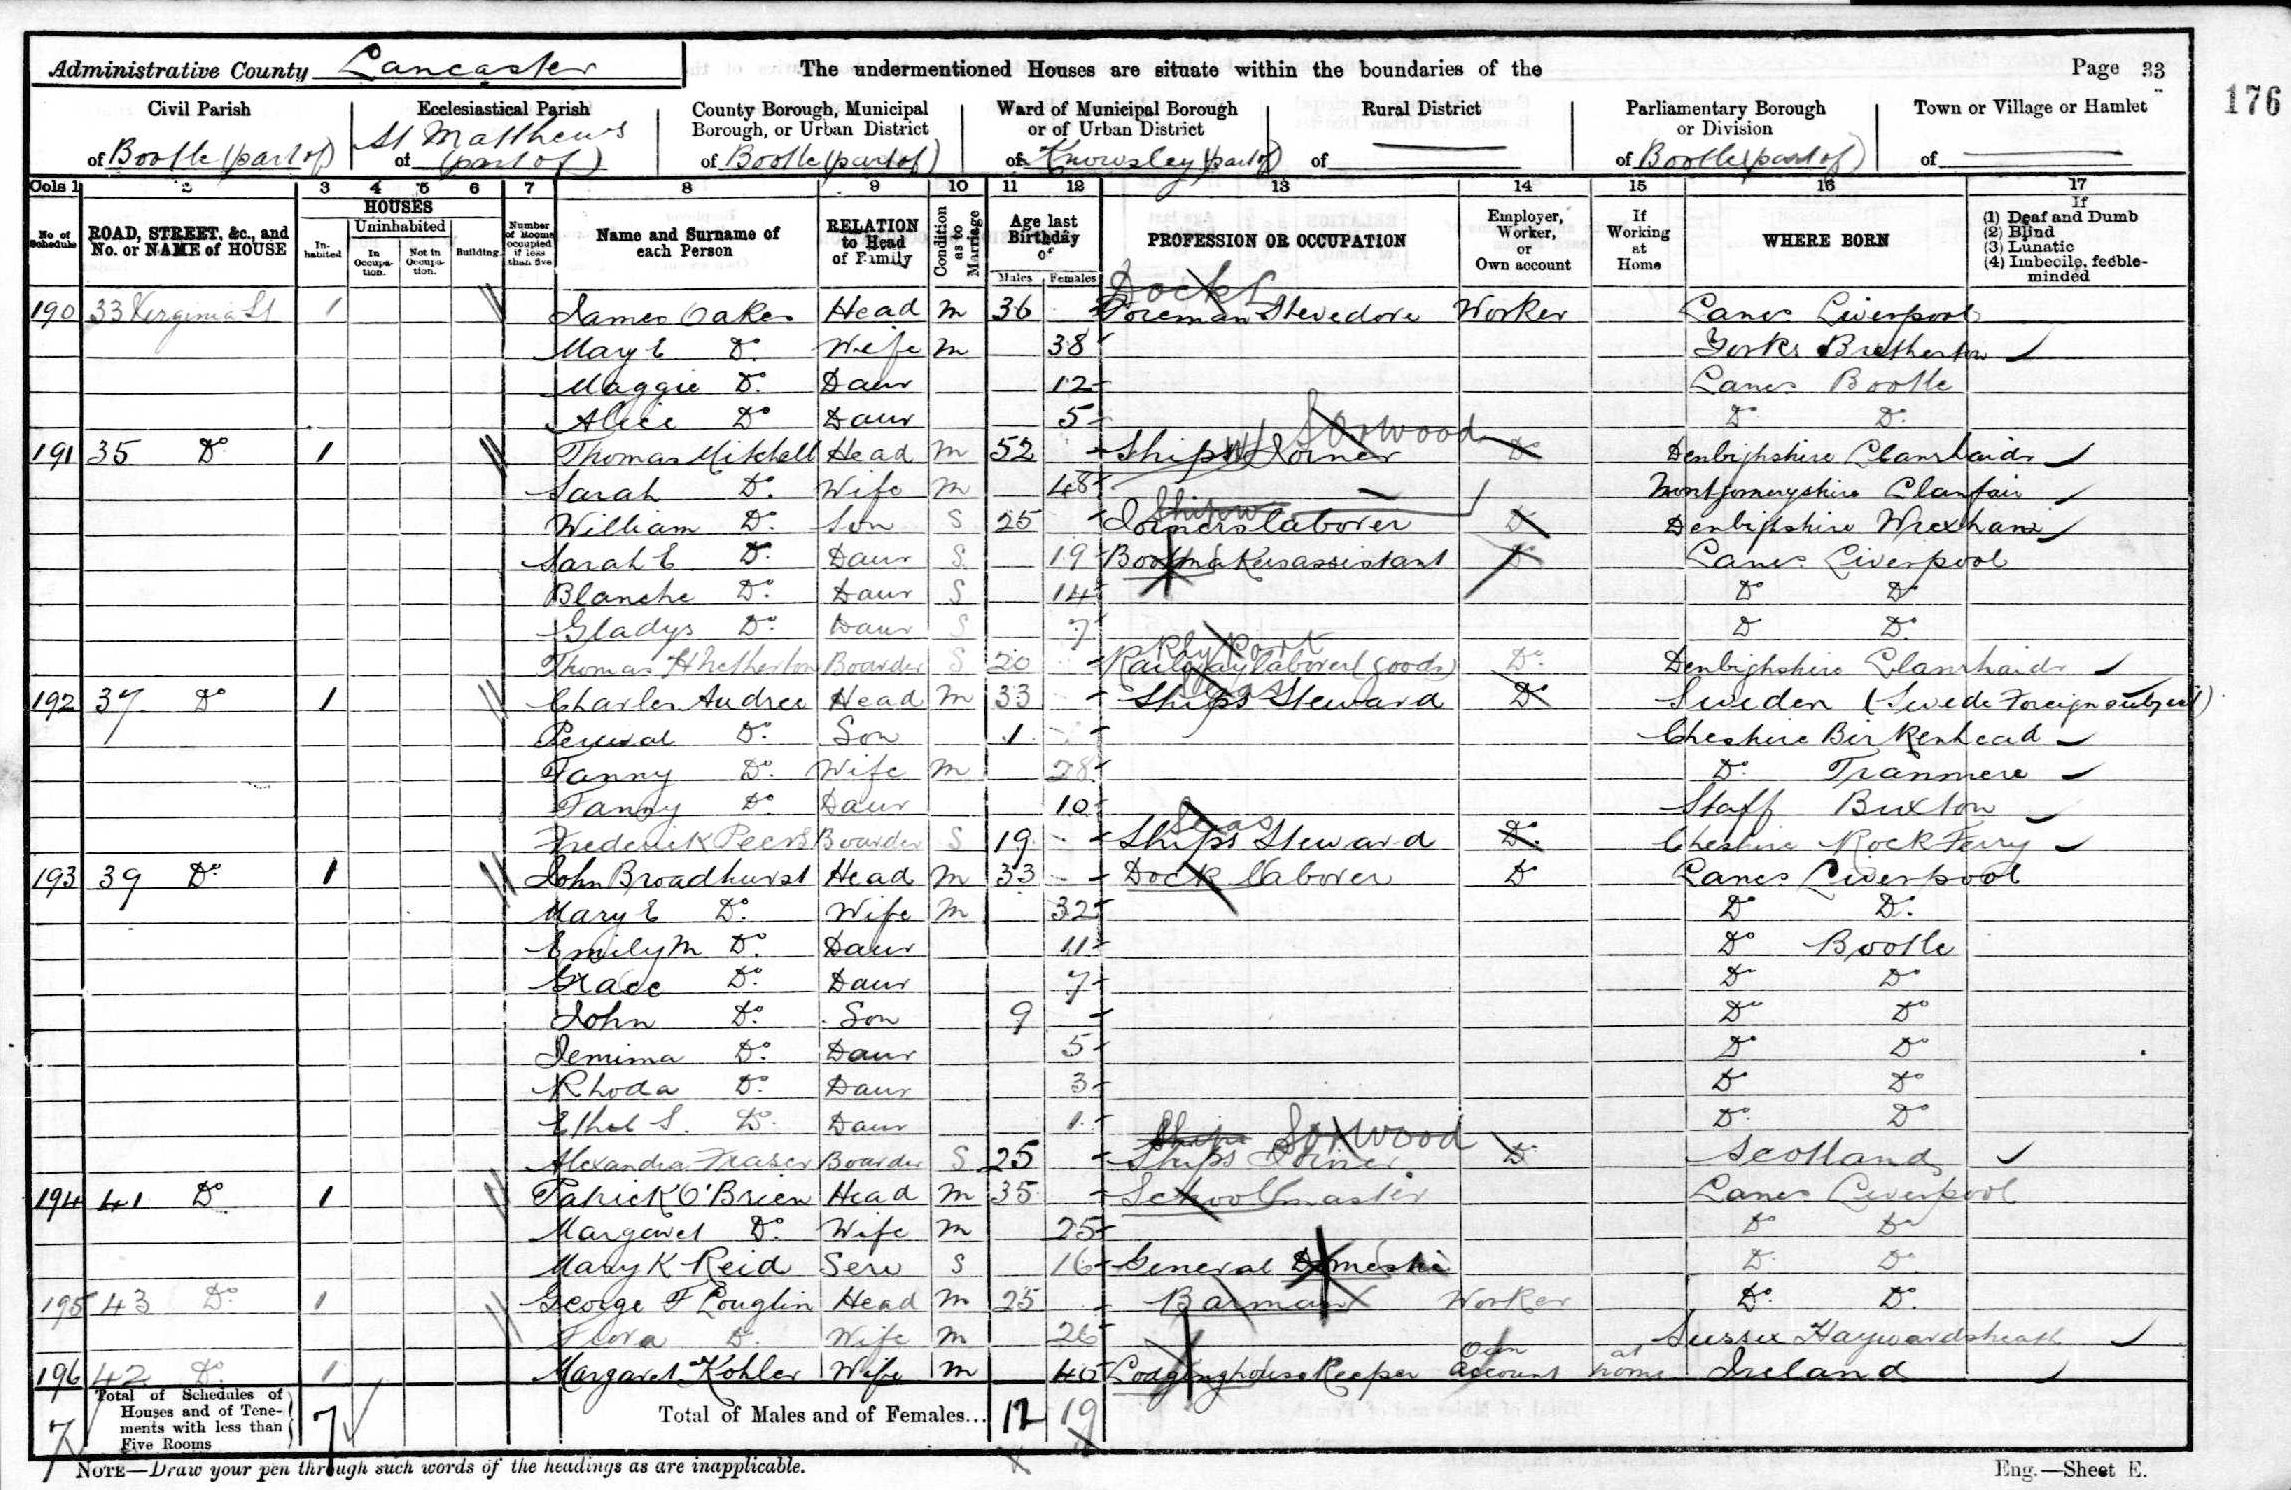 Administrative County Lancaster
The undermentioned Houses are situate within the boundaries of the
Page 33
176
Civil Parish
of Bootle (part of)
Ecclesiastical Parish
of St Matthews (part of)
County Borough, Municipal Borough, or Urban District
of Bootle (part of)
Ward of Municipal Borough or of Urban District
of Knowsley (part of)
Rural District
of
Parliamentary Borough or Division
of Bootle (part of)
Town or Village or Hamlet
of
Cols 1 2 3 4 5 6 7 8 9 10 11 12 13 14 15 16 17
No of Schedule
ROAD, STREET, &c., and No. or NAME of HOUSE
HOUSES
Inhabited
Uninhabited
In Occupation.
Not in Occupation.
Building
Number of Rooms occupied if less than five
Name and Surname of each Person
RELATION to Head of Family
Condition as to Marriage
Age last Birthday of
Males Females
PROFESSION OR OCCUPATION
Employer, Worker, or Own account
If Working at Home
WHERE BORN
If
(1) Deaf and Dumb
(2) Blind
(3) Lunatic
(4) Imbecile, feeble-minded
Dock L
190 33 Verginia St 1 James Oakes Head M 36 Foreman Stevedore Worker Lancs Liverpool
Mary E Do Wife M 38 Yorks Bretherton
Maggie Do Daur 12 Lancs Bootle
Alice Do Daur 5 Do Do
191 35 Do 1 Thomas Mitchell Head M 52 Ships Joiner Do Denbighshire Llanrhaidr
Sarah Do Wife M 48 Montgomeryshire Llanfair
William Do Son S 25 Joiners laborer Do Denbighshire Wrexham
Sarah E Do Daur S 19 Bootmakers assistant Do Lancs Liverpool
Blanche Do Daur S 14 Do Do
Gladys Do Daur S 7 Do Do
Rly Port
Thomas H Netherton Boarder S 20 Railway laborer (goods) Do Denbighshire Llanrhaidr
192 37 Do 1 Charles Andree Head M 33 Ships Steward Do Sweden (Swede Foreign subject)
Percival Do Son 1 Cheshire Birkenhead
Fanny Do Wife M 28 Do Tranmere
Fanny Do Daur 10 Staff Buxton
Seas
Frederick Peers Boarder S 19 Ships Steward Do Cheshire Rock Ferry
193 39 Do 1 John Broadhurst Head M 33 Dock laborer Do Lancs Liverpool
Mary E Do Wife M 32 Do Do
Emily M Do Daur 11 Do Bootle
Grace Do Daur 7 Do Do
John Do Son 9 Do Do
Jemima Do Daur 5 Do Do
Rhoda Do Daur 3 Do Do
Ethel S. Do Daur 1 Do Do
Alexander Fraser Boarder S 25 Ships Joiner Do Scotland
194 41 Do 1 Patrick O'Brien Head M 35 Schoolmaster Lancs Liverpool
Margaret Do Wife M 25 Do Do
Mary K Reid Serv S 16 General Domestic Do Do
195 43 Do 1 George F Louglin Head M 25 Barman Worker Do Do
Flora Do Wife M 26 Sussex Haywardsheath
196 42 Do 1 Margaret Kohler Wife M 40 Lodginghouse Keeper Own account at home Ireland
Total of Schedules of Houses and of Tenements with less than Five Rooms
7 7 Total of Males and of Females... 12 19
NOTE—Draw your pen through such words of the headings as are inapplicable.
Eng.—Sheet E.